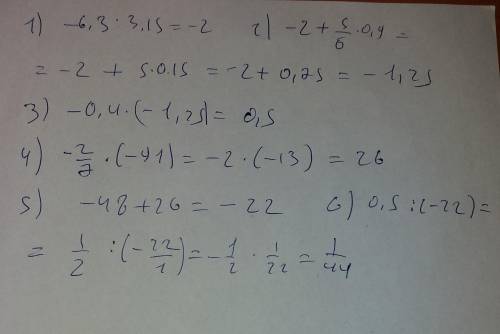 1) -6,3 : 3,15 = -2   2) -2 + 5/6 · 0,9 =
= -2 + 5 · 0.15 = -2 + 0,75 = -1,25
3) -0,4 · (-1,25) = 0,5
4) -2/7 · (-91) = -2 · (-13) = 26
5) -48 + 26 = -22   6) 0,5 : (-22) =
= 1/2 : (-22/1) = -1/2 · 1/22 = 1/44